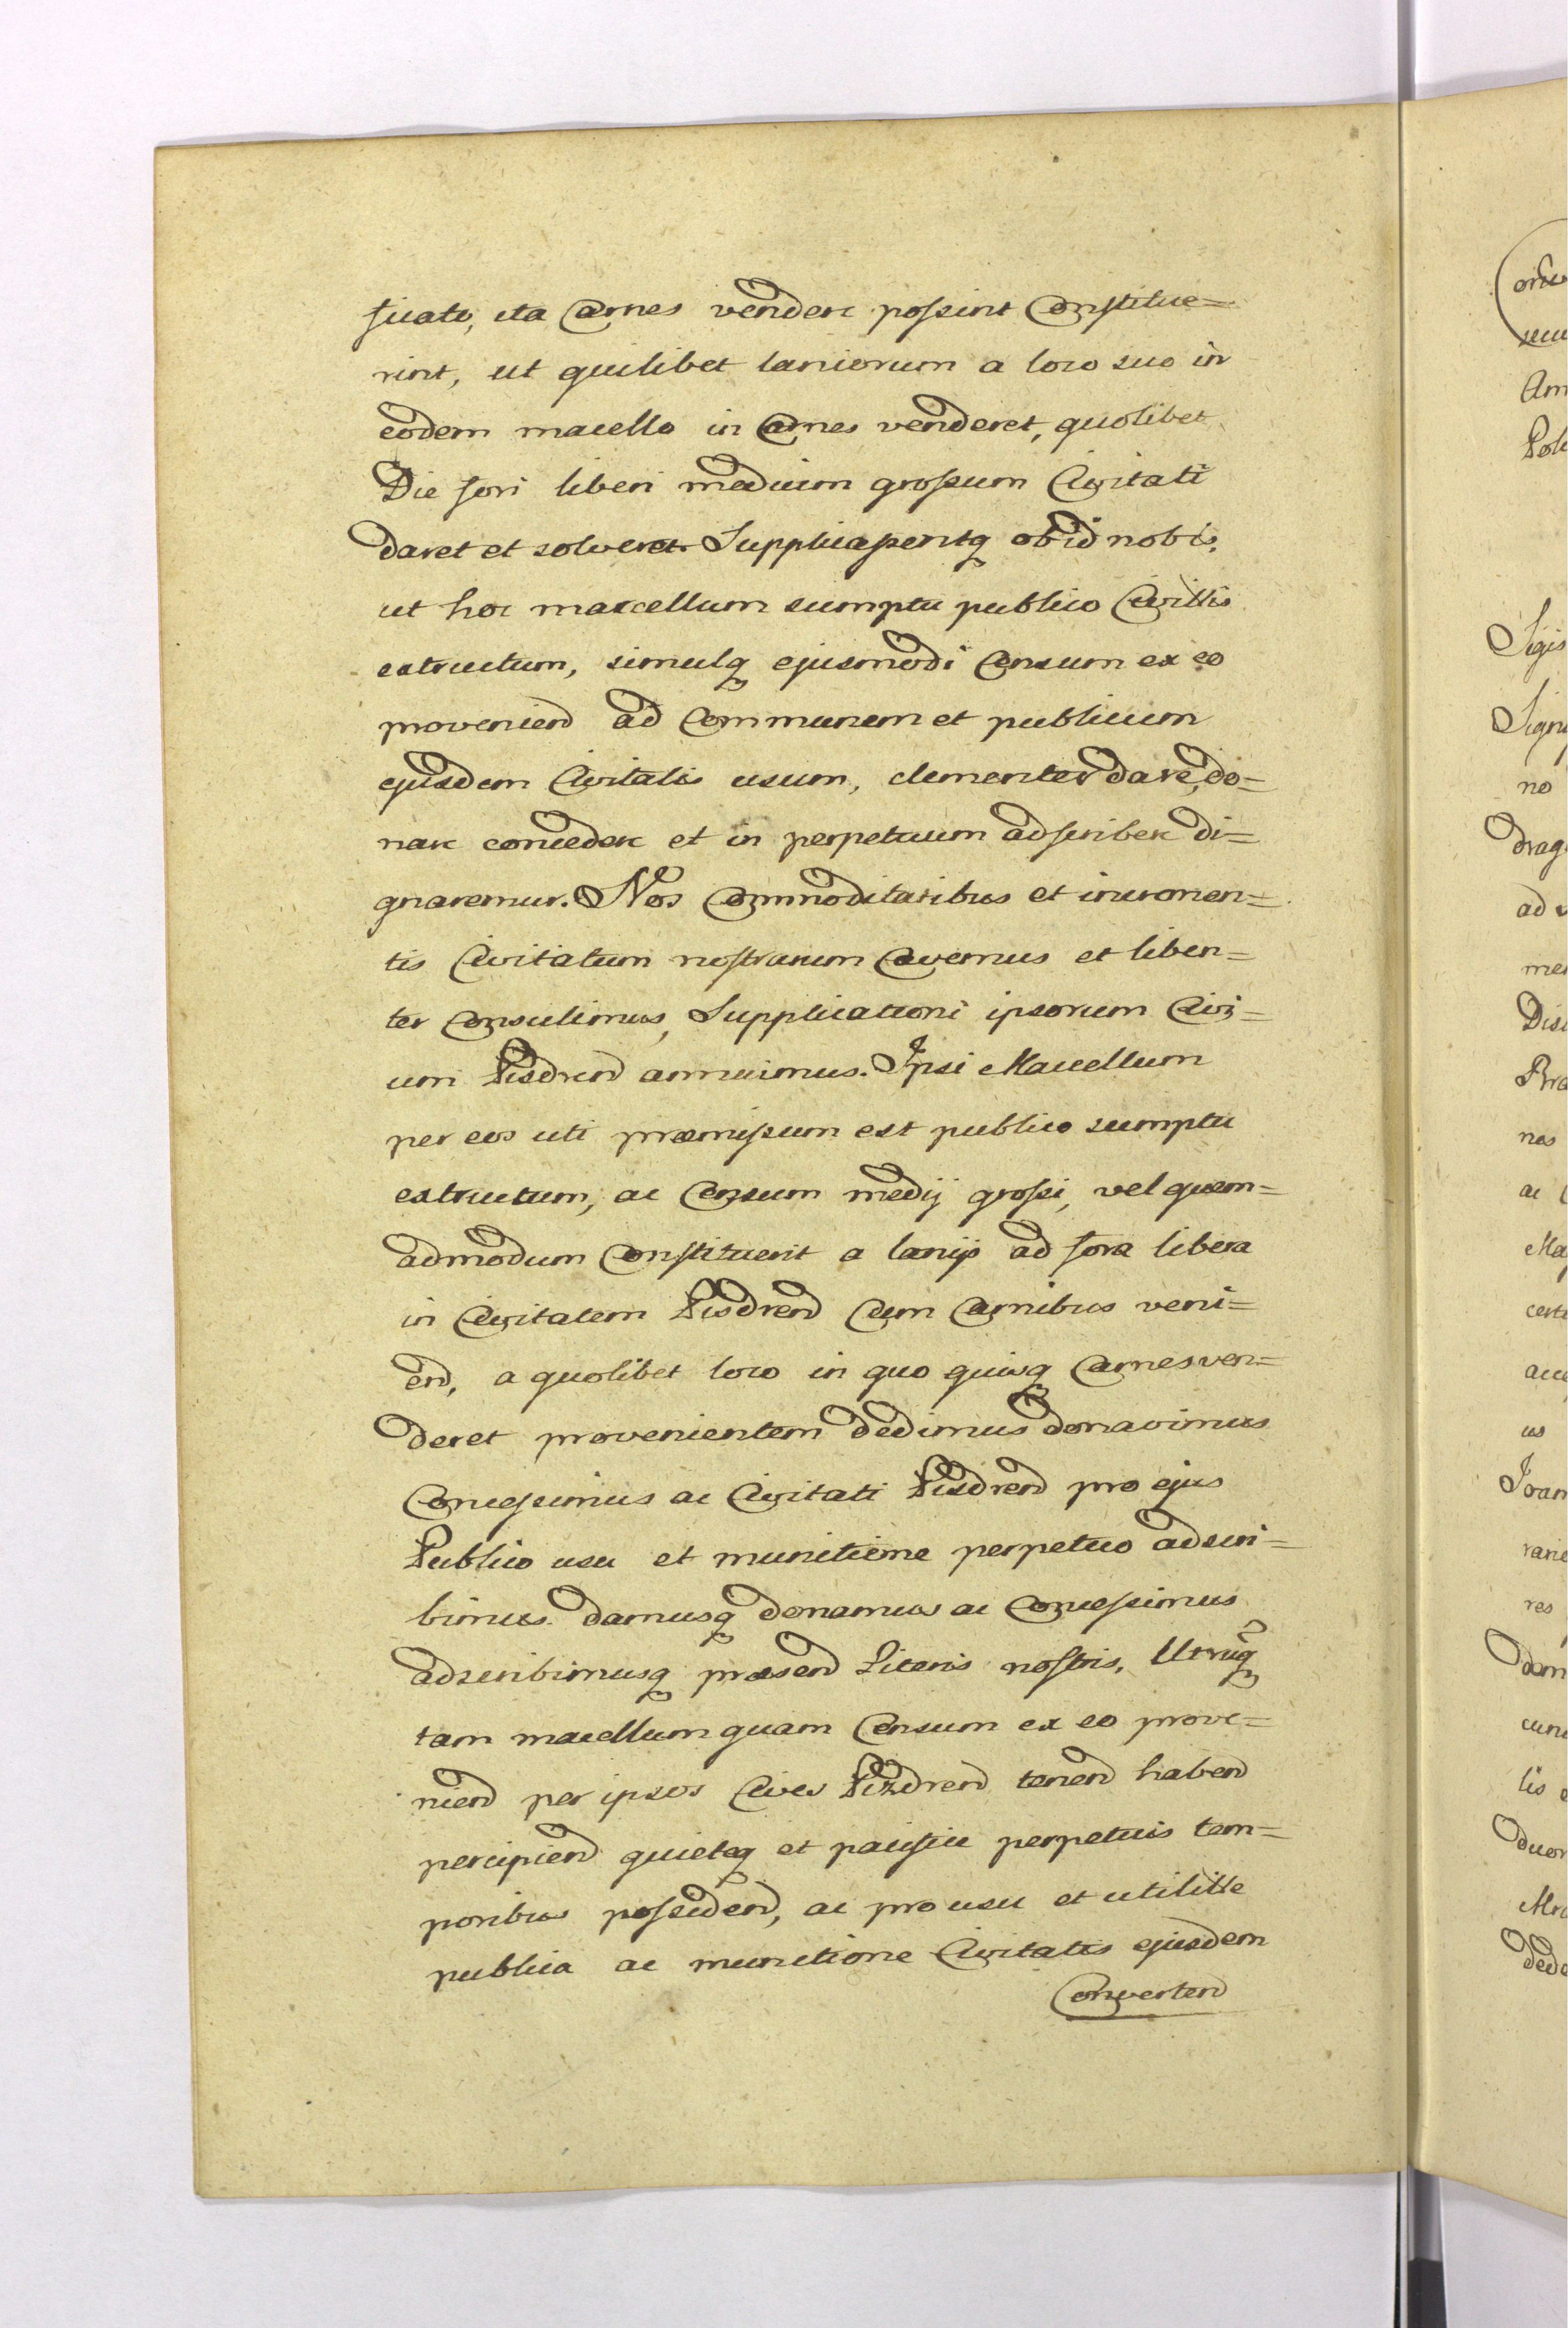 ficato, ita Carnes vendere possint Constitue=
rint, ut quilibet laniorum a loco suo in
eodem macello in Carnes venderet, quolibet
Die fori liberi medium grossum Civitati
daret et solveret. Supplicassentq ob id nobis,
ut hoc marcellum sumptu publico Civittis
extructum, simulq ejusmodi Censum ex eo
proveniend ad Communem et publicum
ejusdem Civitatis usum, clementer dare, do=
nare concedere et in perpetuum adscribere di=
gnaremur. Nos Commoditatibus et incremen=
tis Civitatum nostrarum Cavemus et liben=
ter Consulimus, Supplicationi ipsorum Civi=
um Pisdrend annuimus. Ipsi Macellum
per eos uti præmissum est publico sumptu
extructum, ac Censum medij grossi, vel quem=
admodum Constituerit a lanijs ad fora libera
in Civitatem Pisdrend Cum Carnibus veni=
end, a quolibet loco in quo quisq Carnes ven=
deret provenientem dedimus donavimus
Concessimus ac Civitati Pisdrend pro ejus
Publico usu et munitione perpetuo adscri=
bimus damusq donamus ac Concessimus
adscribimusq præsend Literis nostris, Utrūq
tam macellum quam Censum ex eo prove=
niend per ipsos Cives Pizdrend tenend habend
percipiend quieteq et pacifice perpetuis tem=
poribus possidend, ac pro usu et utilitte
publica ac munitione Civitatis ejusdem
Convertend